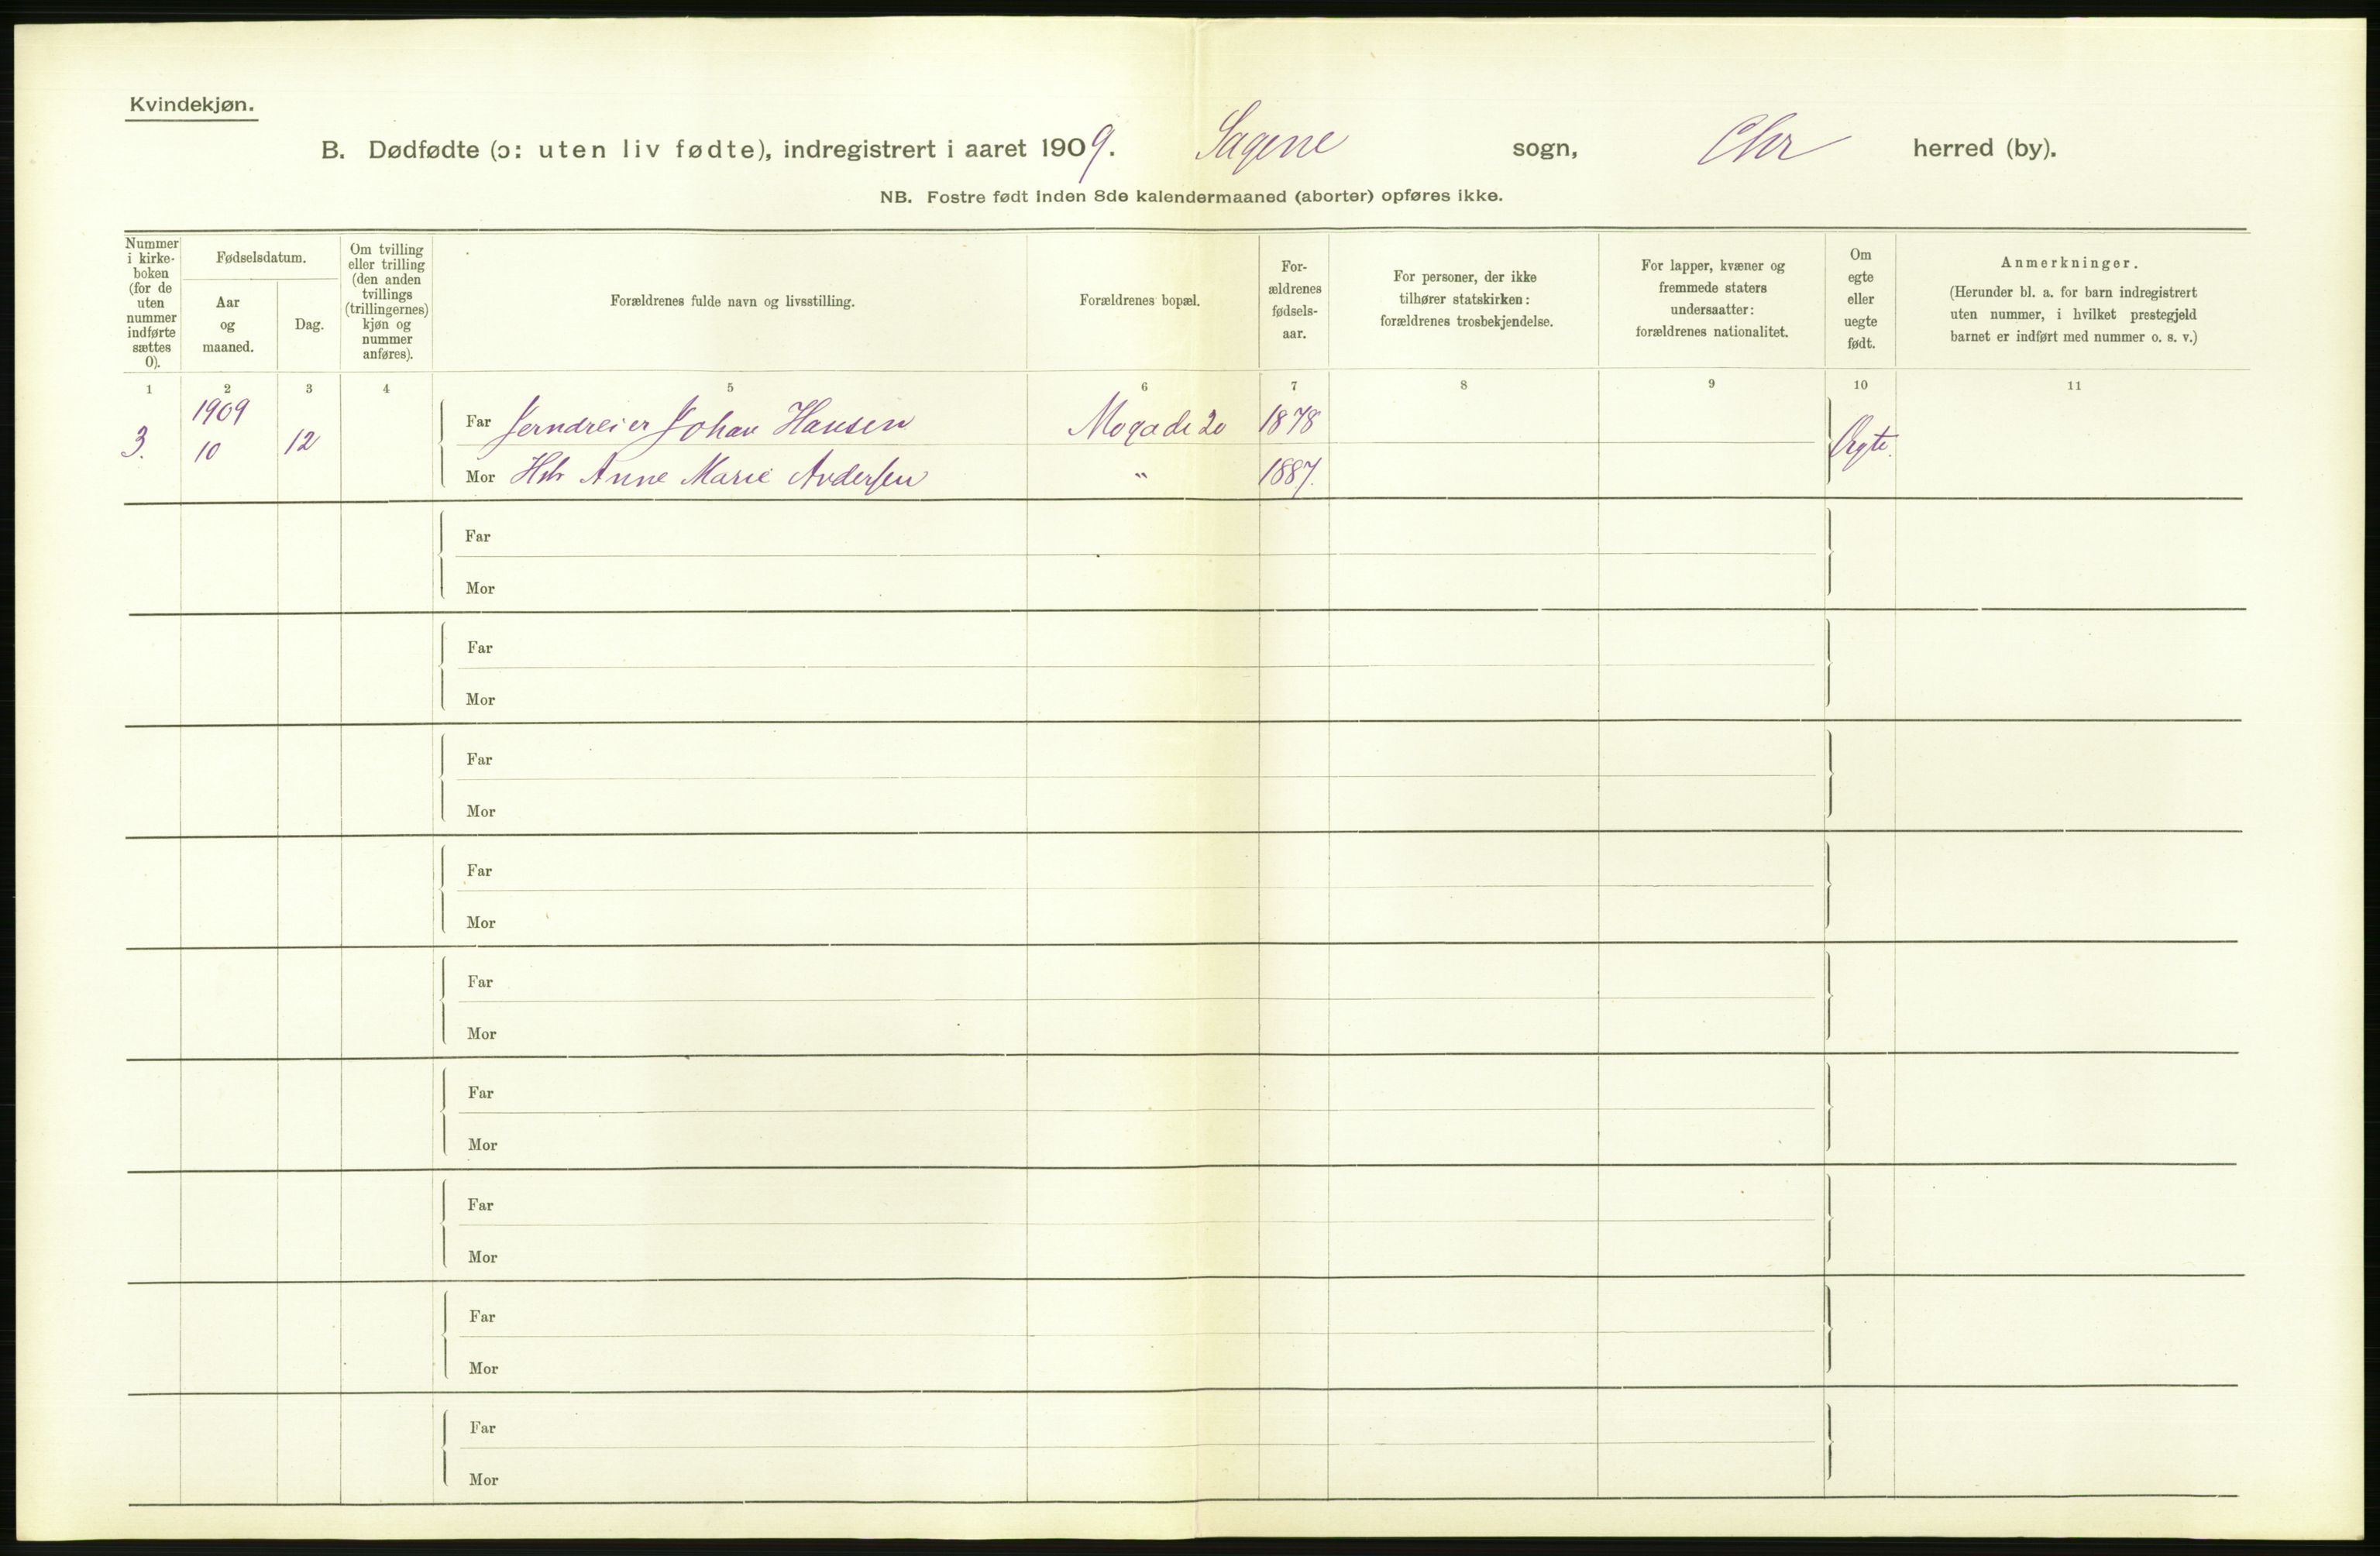 Kvindekjøn.
B. Dødfødte (ɔ: uten liv fødte), indregistrert i aaret 1909. Sagene sogn, Chr herred (by).
NB. Fostre født inden 8de kalendermaaned (aborter) opføres ikke.
Nummer
i kirke-
boken
(for de
uten
nummer
indførte
sættes
0).
Fødselsdatum.
Aar
og
maaned.
Dag.
Om tvilling
eller trilling
(den anden
tvillings
(trillingernes)
kjøn og
nummer
anføres).
Forældrenes fulde navn og livsstilling.
Forældrenes bopæl.
For-
ældrenes
fødsels-
aar.
For personer, der ikke
tilhører statskirken:
forældrenes trosbekjendelse.
For lapper, kvæner og
fremmede staters
undersaatter:
forældrenes nationalitet.
Om
egte
eller
uegte
født.
Anmerkninger.
(Herunder bl. a. for barn indregistrert
uten nummer, i hvilket prestegjeld
barnet er indført med nummer o. s. v.)
1 2 3 4 5 6 7 8 9 10 11
1909
3. 10 12
Far Jerndreier Johan Hansen Mogade 20 1878
Ægte.
Mor Hstr Anne Marie Andersen " 1887.
Far
Mor
Far
Mor
Far
Mor
Far
Mor
Far
Mor
Far
Mor
Far
Mor
Far
Mor
Far
Mor